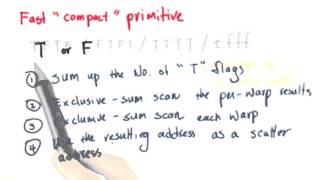 Fast "compact" primitive
T or F
① sum up the No. of "T" flags
② Exclusive-sum scan the per-warp results
③ Exclusive-sum scan each warp
④ Use the resulting address as a scatter
address